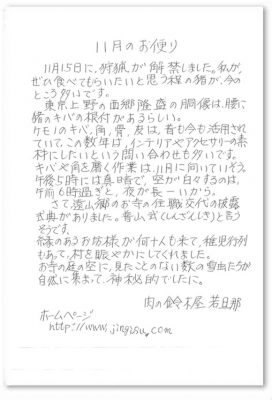 11月のお便り
11月15日に、狩猟が解禁しました。私が、
ぜひ食べてもらいたいと思う程の猪が、今の
ところ多いです。
東京上野の西郷隆盛の胴像は、腰に
猪のキバの根付があるらしい。
ケモノのキバ、角、骨、皮は、昔も今も活用され
ていて、この数年は、インテリアやアクセサリーの素
材にしたいという問い合わせも多いです。
キバや角を磨く作業は、11月に向いていそう。
午後5時には真っ暗で、空が白々するのは、
午前6時過ぎと、夜が長ーいから。
さて遠山郷のお寺の住職交代の披露
式典がありました。晋山式(しんざんしき)と言う
そうです。
縁のあるお坊様が何十人も来て、稚児行列
もあって、村を賑やかにしてくれました。
お寺の庭の空に、見たことのない数の雪虫たちが
自然に集まって、神秘的でしたに。
肉の鈴木屋 若旦那
ホームページ
http://www.jingisu.com